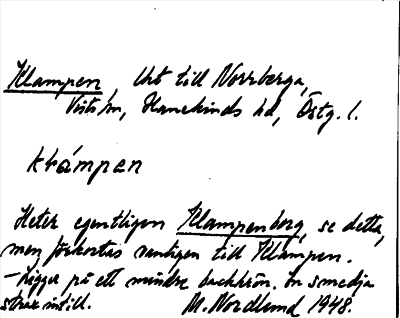 Klampen, lht till Norrberga,
Vists sn, Hanekinds hd, Östg. l.
klámpen
Heter egentligen Klampenborg, se detta,
men förkortas vanligen till Klampen.
— Ligger på ett mindre backkrön. En smedja
strax intill. M. Nordlund 1948.